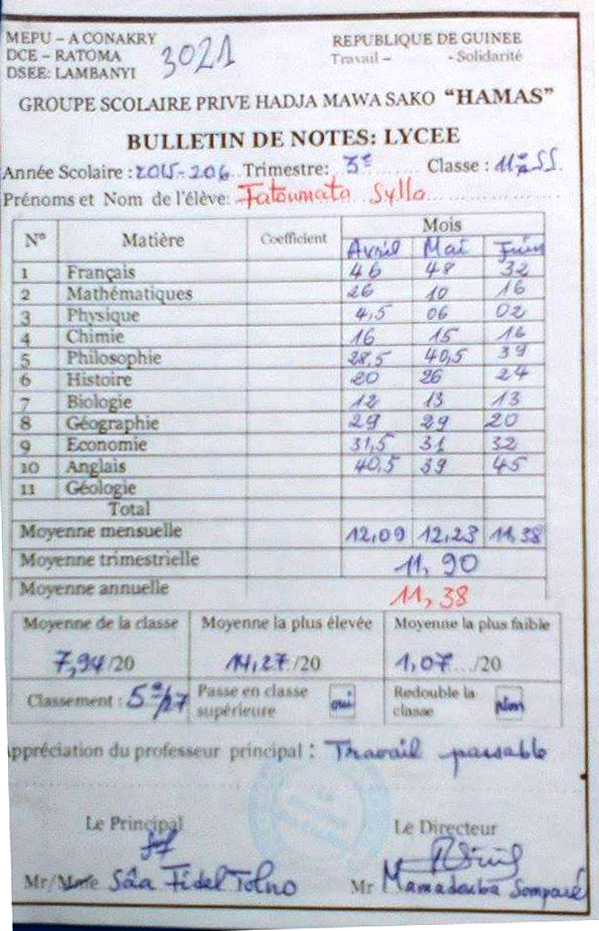 MEPU – A CONAKRY
DCE – RATOMA
DSEE: LAMBANYI
3021
REPUBLIQUE DE GUINEE
Travail – - Solidarité
GROUPE SCOLAIRE PRIVE HADJA MAWA SAKO "HAMAS"
BULLETIN DE NOTES: LYCEE
Année Scolaire : 2015-206 Trimestre: 3e Classe : 11e SS
Prénoms et Nom de l'élève: Fatoumata Sylla
N° Matière Coefficient Mois
Avril Mai Juin
1 Français 46 48 32
2 Mathématiques 26 10 16
3 Physique 4,5 06 02
4 Chimie 16 15 16
5 Philosophie 28,5 40,5 39
6 Histoire 20 26 24
7 Biologie 12 13 13
8 Géographie 29 29 20
9 Economie 31,5 31 32
10 Anglais 40,5 39 45
11 Géologie
Total
Moyenne mensuelle 12,09 12,23 11,38
Moyenne trimestrielle 11,90
Moyenne annuelle 11,38
Moyenne de la classe Moyenne la plus élevée Moyenne la plus faible
7,94/20 14,27/20 1,07.../20
Classement : 5e/27 Passe en classe supérieure oui Redouble la classe non
Appréciation du professeur principal : Travail passable
Le Principal Le Directeur
Mr/Mme Sâa Fidel Tolno Mr Mamadouba Somparé